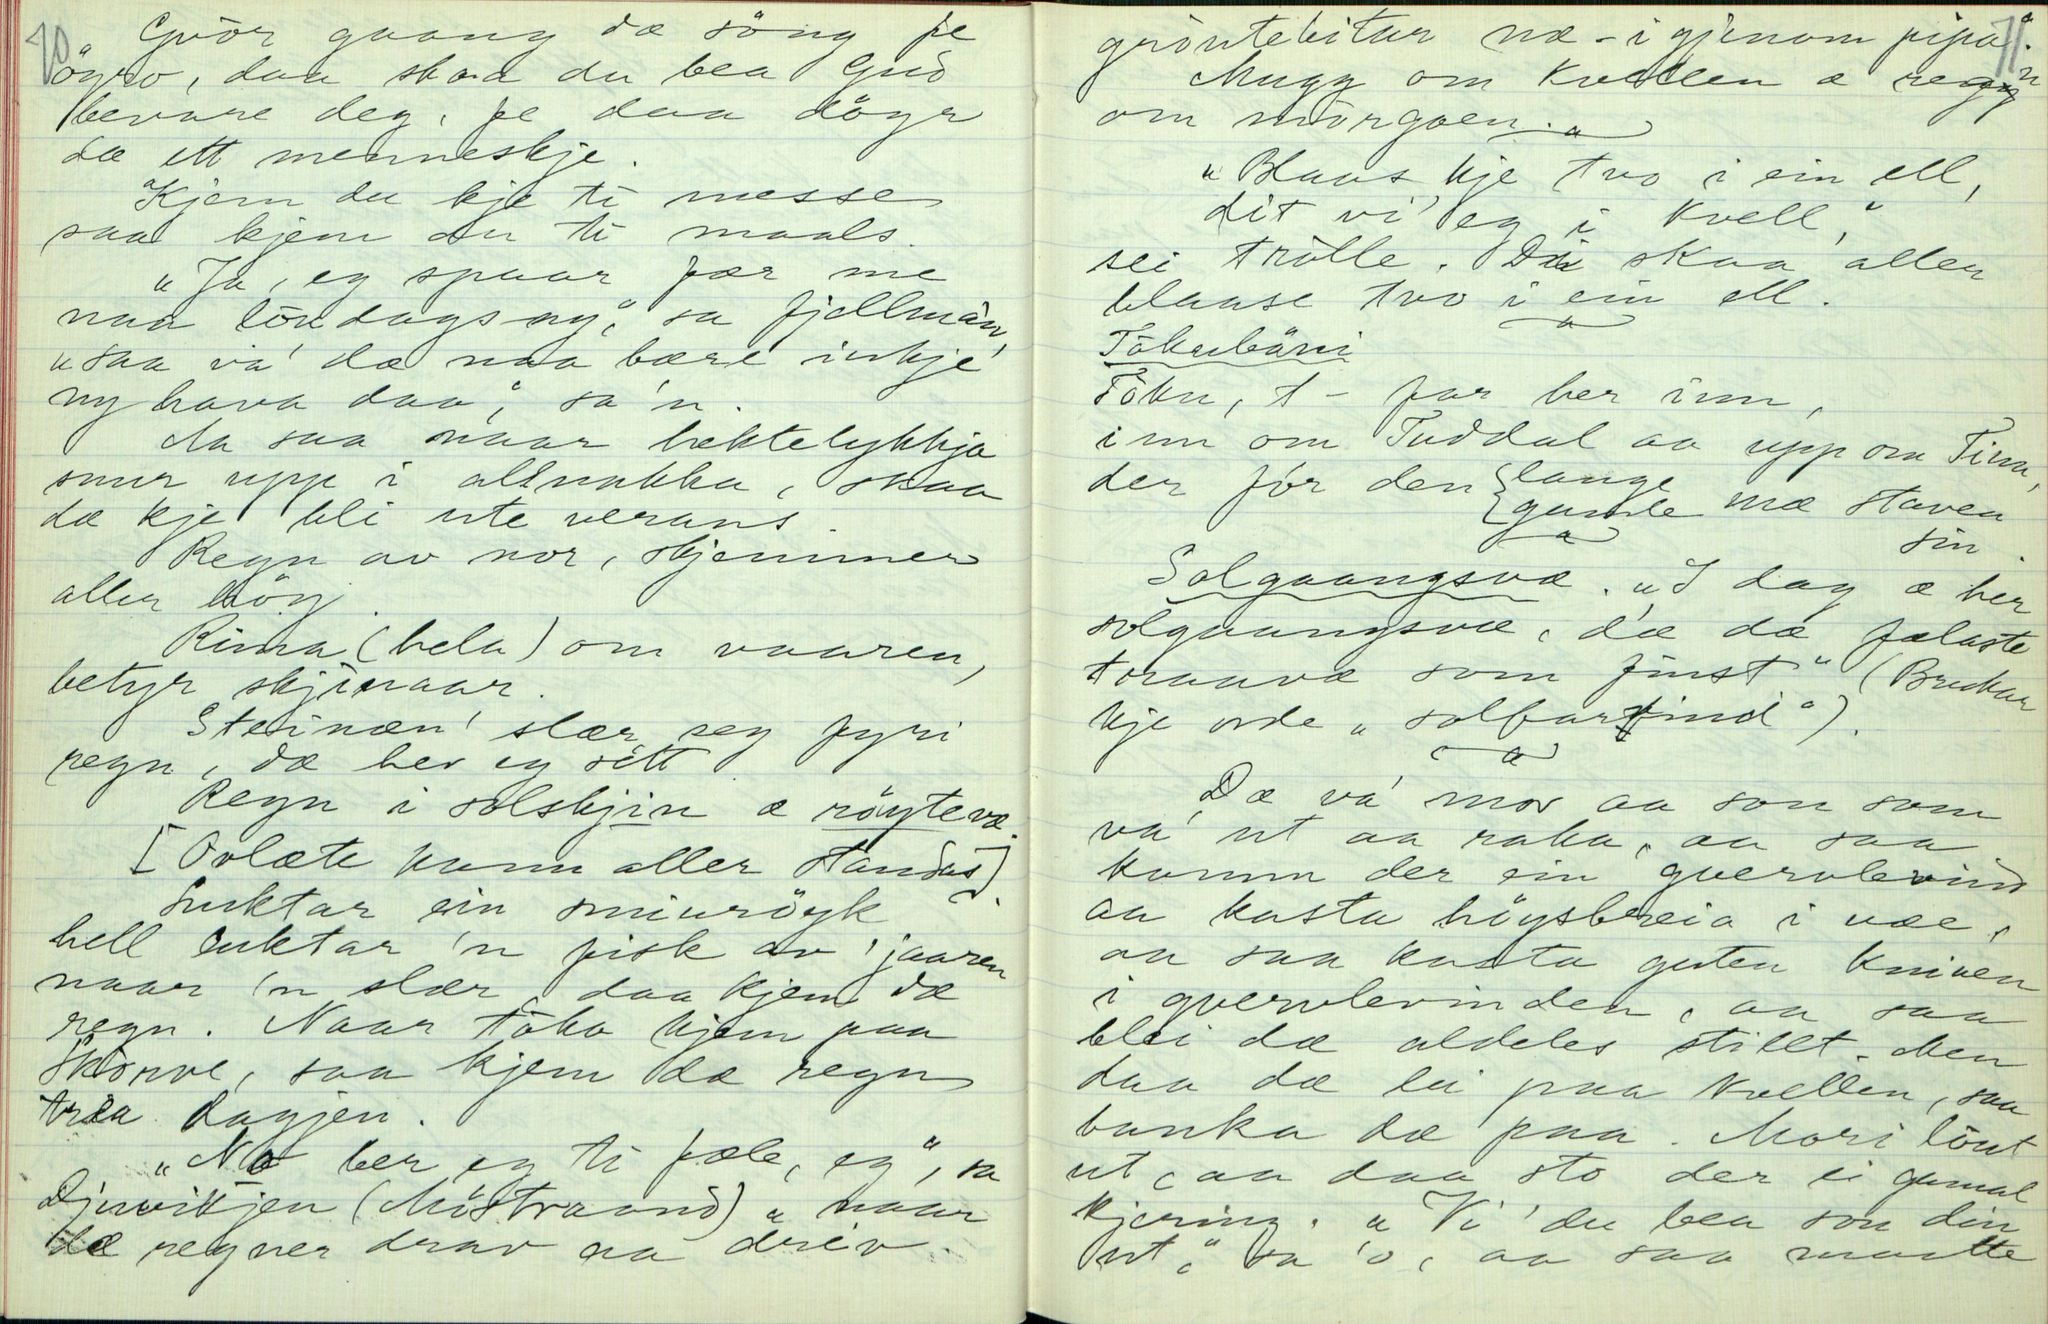 70
Gvör gaang dæ söng fe
öyro, daa skaa du bea Gud
bevare deg, fe daa döyr
dæ ett menneskje.
Kjem du kje ti messe
saa kjem du ti maals.
"Ja, eg spaar fær me
naa löndagsny," sa fjellmän,
"saa va' dæ naa bære inkje
ny hava daa," sa'n.
Ja saa naar hektelykkja
snur upp i allnakka, skaa
dæ kje bli ute verans.
Regn av nor, skjemmer
aller höy.
Rima (hela) om vaaren,
betyr skjinaar.
Steinæn' slær seg fyri
regn, dæ hev eg sétt.
Regn i solskjin æ röytevæ.
[Ovlæte kann aller standas].
Luktar ein smiuröyk
hell luktar 'n fisk av 'jaaren
naar 'n slær, daa kjem dæ
regn. Naar töka kjem paa
Skorve, saa kjem dæ regn
triea dagjen.
"No ber eg ti fæle, eg", sa
Djuvikjen (Möstraand) "naar
dæ regner drav na driv.
71
gröutebitar næ-igjenom pipa."
Mugg om kvellen æ regn
om mörgoen.
"Blaas kje tvo i ein ell,
dit vi' eg i kvell,"
sei trölle. Dei skaa aller
blaase tvo i ein ell.
Tökebäni
Töku, t- far her inn,
inn om Tuddal aa upp om Tinn,
der för den { lange
{ gamle mæ staven
sin.
Solgaangsvæ. "I dag æ her
solgaangsvæ, d'æ dæ fælaste
toraavæ som finst" (Brukar
kje orde "solfarvind").
Dæ va' mor aa son som
va' ut aa raka, aa saa
kamm der ein gvervlevind
aa kasta höysbreia i væe,
aa saa kasta guten kniven
i gvervlevinden, aa saa
blei dæ aldeles stillt. Men
daa dæ lei paa kvellen, saa
banka dæ paa. Mori lönt
ut, aa daa sto der ei gamal
kjering. "Vi' du bea son din
ut," sa 'o, aa saa maatte